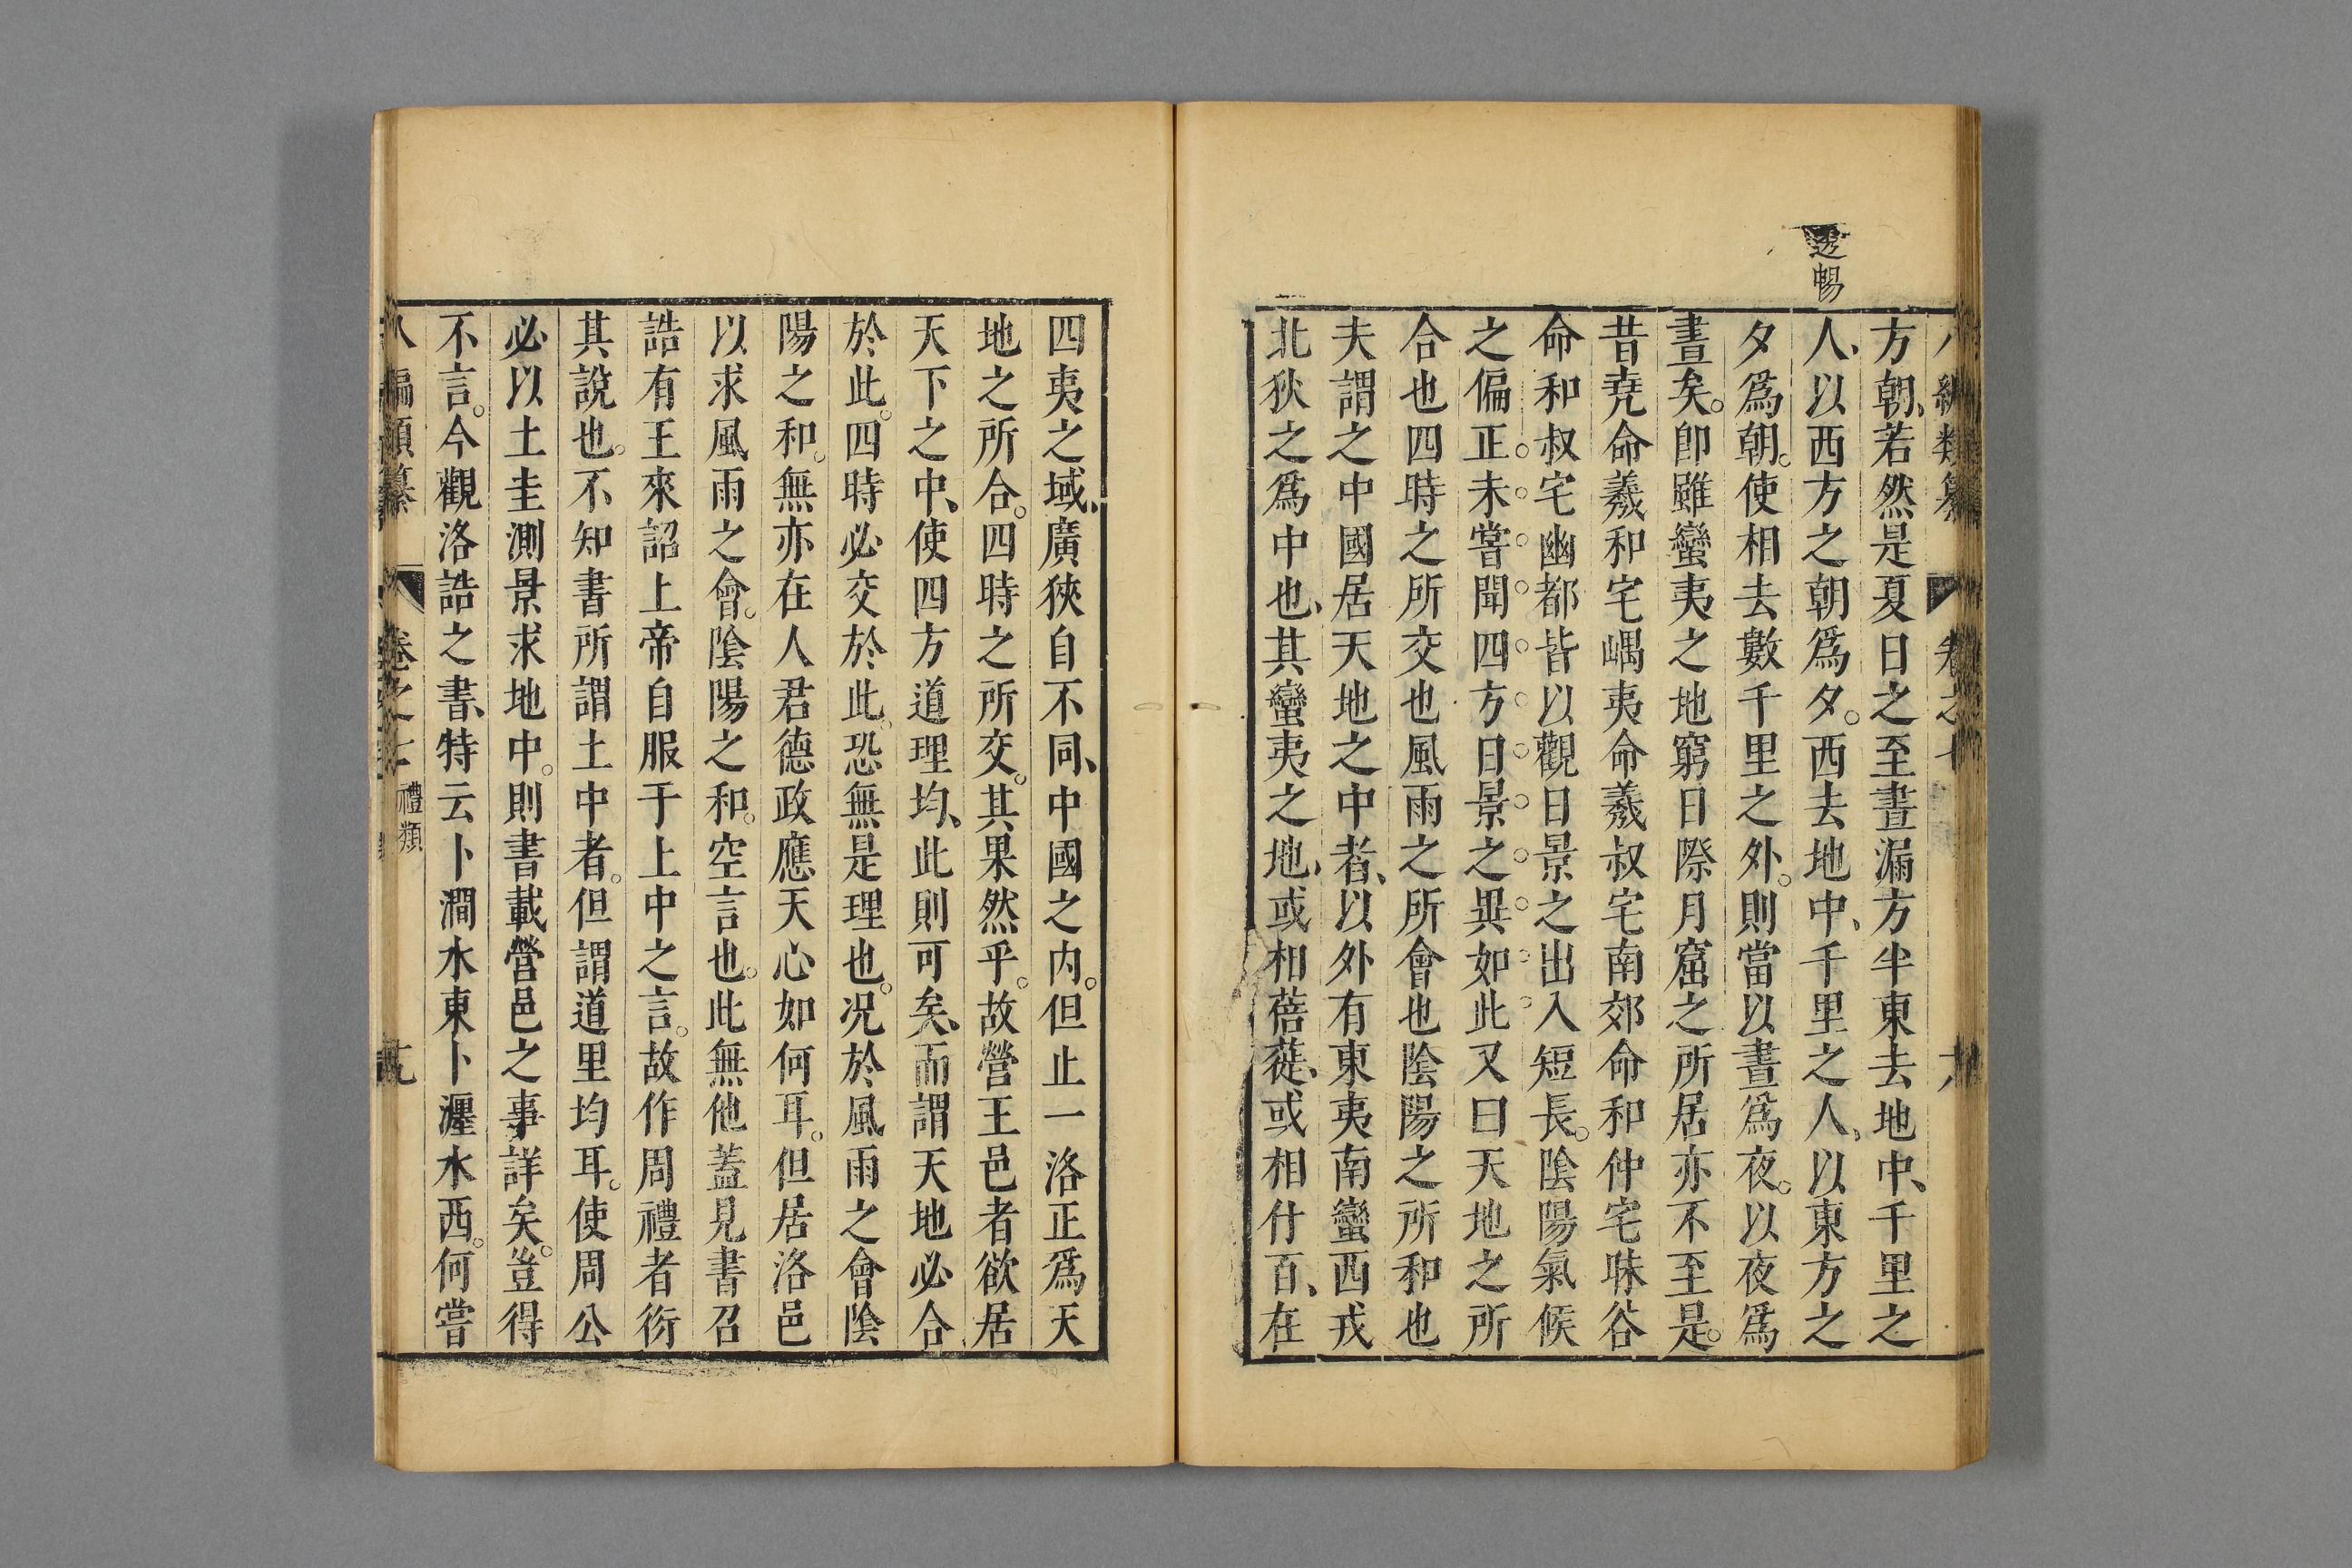 暢
方朝、若然是夏日之至晝漏方半東去地中、千里之
人、以西方之朝爲夕。西去地中、千里之人、以東方之
夕爲朝。使相去數千里之外。則當以晝爲夜。以夜爲
晝矣。卽雖蠻夷之地窮日際月窟之所居亦不至是。
昔堯命羲和宅嵎夷命羲叔宅南郊命和仲宅昧谷
命和叔宅幽都皆以觀日景之出入短長。陰陽氣候
之偏正。未嘗聞四方日景之異如此又曰天地之所
合也四時之所交也風雨之所會也陰陽之所和也
夫謂之中國居天地之中者、以外有東夷南蠻西戎
北狄之爲中也、其蠻夷之地、或相蓓蓰、或相什百、在
四夷之域、廣狹自不同、中國之内。但止一洛正爲天
地之所合。四時之所交。其果然乎。故營王邑者欲居
天下之中、使四方道理均、此則可矣、而謂天地必合
於此。四時必交於此。恐無是理也。况於風雨之會陰
陽之和。無亦在人君德政應天心如何耳。但居洛邑
以求風雨之會。陰陽之和。空言也。此無他蓋見書召
誥有王來詔上帝自服于上中之言。故作周禮者衍
其說也。不知書所謂土中者。但謂道里均耳。使周公
必以土圭測景求地中。則書載營邑之事詳矣。豈得
不言。今觀洛誥之書、特云卜澗水東卜瀍水西。何嘗
八編類纂 卷之七 禮類